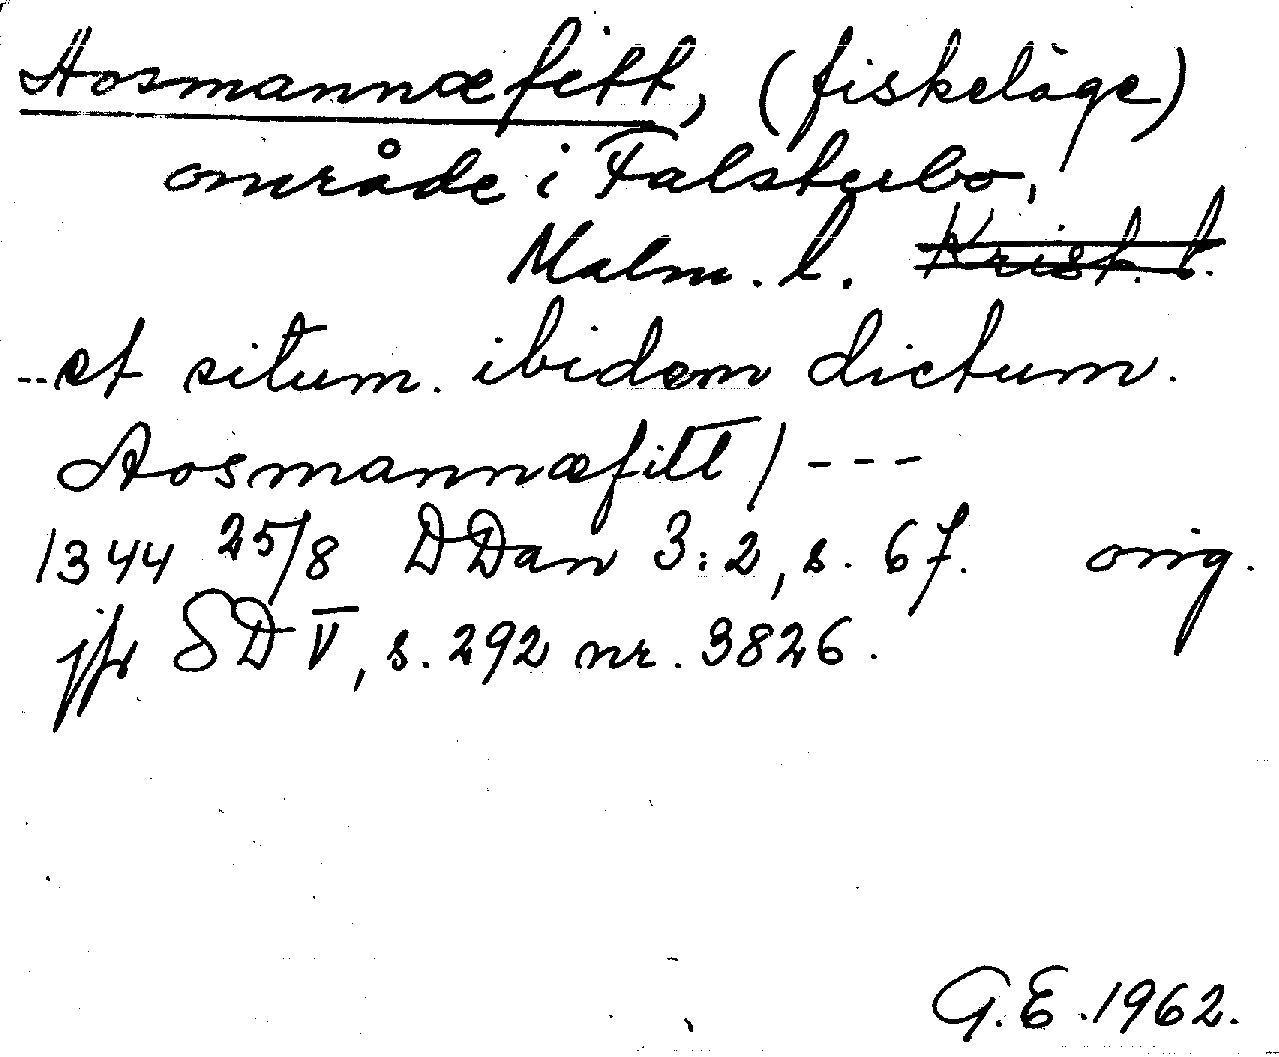 Aosmannæfitt, (fiskeläge)
område i Falsterbo,
Malm. l. Krist. l.
--et situm. ibidem dictum.
Aosmannæfitt / ---
1344 25/8 DDan 3:2, s. 67. orig.
jfr SD V, s. 292 nr. 3826.
G.E. 1962.